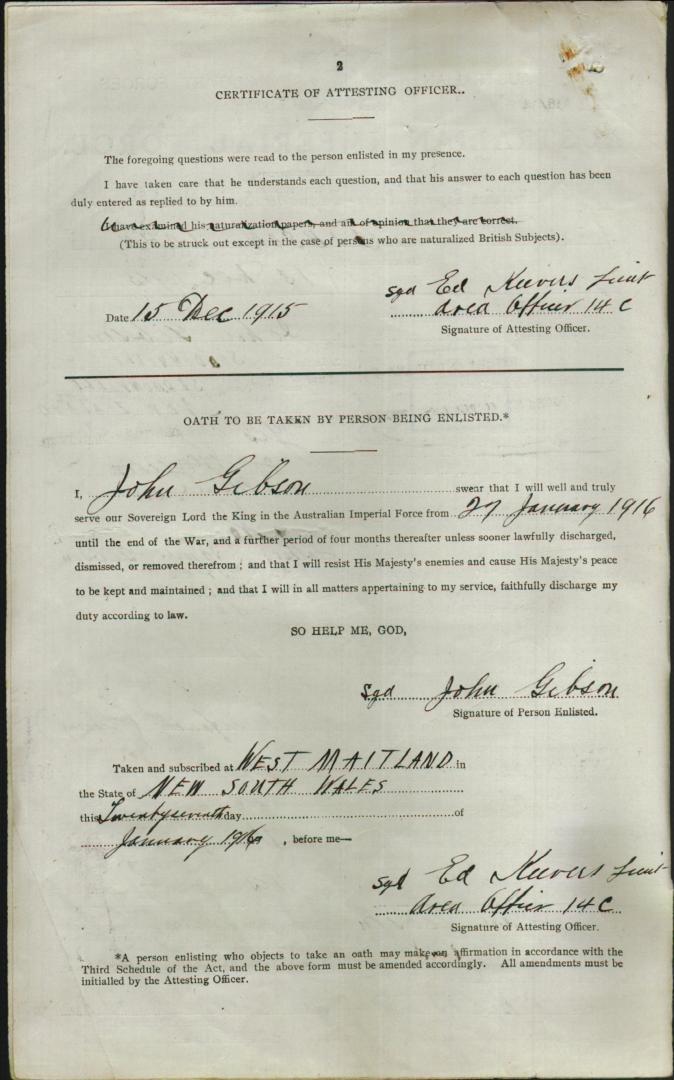 2
CERTIFICATE OF ATTESTING OFFICER..
The foregoing questions were read to the person enlisted in my presence.
I have taken care that he understands each question, and that his answer to each question has been
duly entered as replied to by him.
I have examined his naturalization papers, and am of opinion that they are correct.
(This to be struck out except in the case of persons who are naturalized British Subjects).
Sgd Ed Keevers Lieut
Date 15 Dec 1915 Area Officer 14 C
Signature of Attesting Officer.
OATH TO BE TAKEN BY PERSON BEING ENLISTED.*
I, John Gibson swear that I will well and truly
serve our Sovereign Lord the King in the Australian Imperial Force from 27 January 1916
until the end of the War, and a further period of four months thereafter unless sooner lawfully discharged,
dismissed, or removed therefrom ; and that I will resist His Majesty's enemies and cause His Majesty's peace
to be kept and maintained ; and that I will in all matters appertaining to my service, faithfully discharge my
duty according to law.
SO HELP ME, GOD,
Sgd John Gibson
Signature of Person Enlisted.
Taken and subscribed at WEST MAITLAND in
the State of NEW SOUTH WALES
this Twentyseventh day of
January 1916 , before me—
Sgd Ed Keevers Lieut
Area Officer 14 C
Signature of Attesting Officer.
*A person enlisting who objects to take an oath may make an affirmation in accordance with the
Third Schedule of the Act, and the above form must be amended accordingly. All amendments must be
initialled by the Attesting Officer.